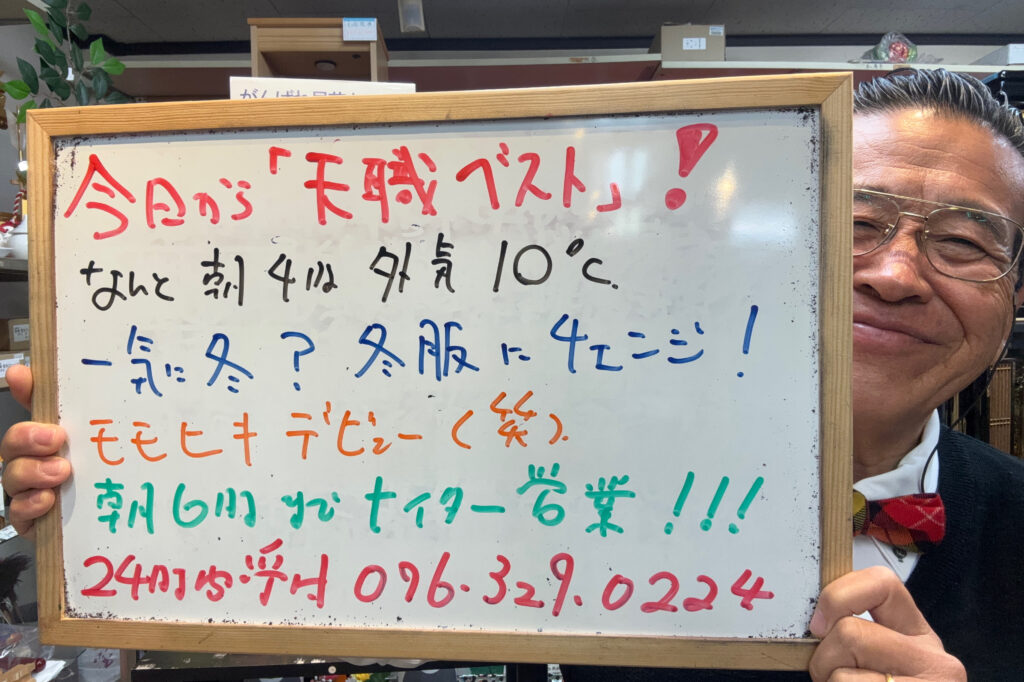 今日から「天職ベスト」!
なんと朝4時外気10℃.
一気に冬?冬服にチェンジ!
モモヒキデビュー(笑).
朝6時までナイター営業!!!
24時間受付 096.329.0224